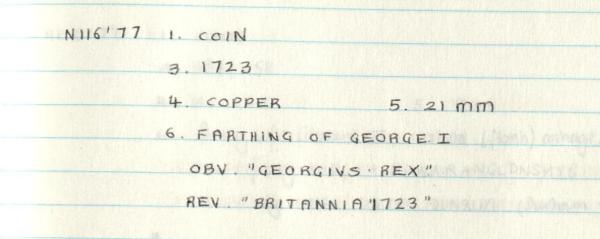 N116'77 1. COIN
3. 1723
4. COPPER 5. 21 mm
6. FARTHING OF GEORGE I
OBV. "GEORGIVS REX"
REV. "BRITANNIA 1723"